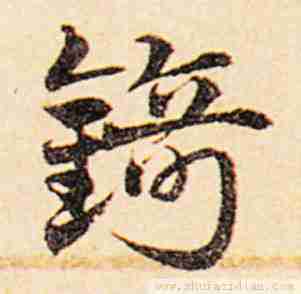 錡
www.shufazidian.com